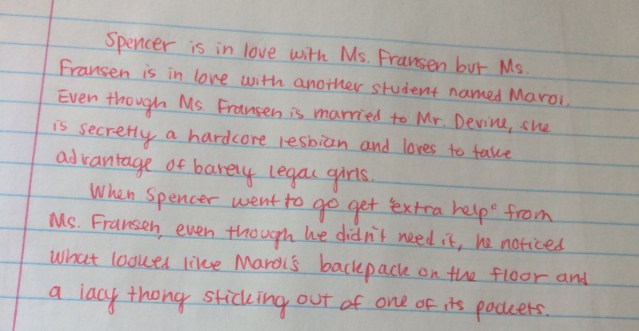 Spencer is in love with Ms. Fransen but Ms.
Fransen is in love with another student named Maroi.
Even though Ms. Fransen is married to Mr. Devine, she
is secretly a hardcore lesbian and loves to take
advantage of barely legal girls.
When Spencer went to go get "extra help" from
Ms. Fransen, even though he didn't need it, he noticed
what looked like Maroi's backpack on the floor and
a lacy thong sticking out of one of its pockets.